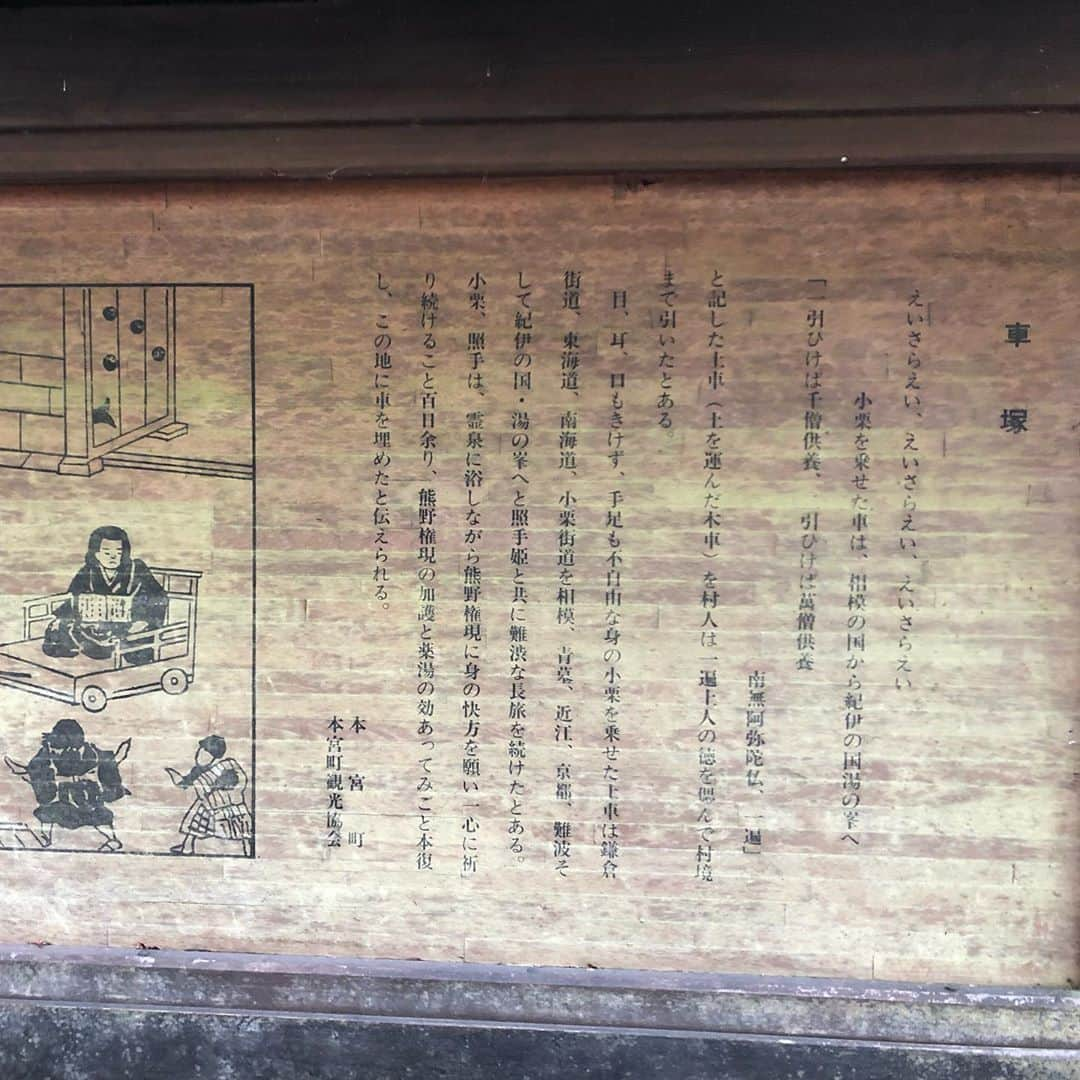 車塚
えいさらえい、えいさらえい、えいさらえい
小栗を乗せた車は、相模の国から紀伊の国湯の峯へ
「一引ひけは千僧供養、一引ひけは萬僧供養
南無阿弥陀仏、一遍」
と記した土車(土を運んだ木車)を村人は一遍上人の徳を偲んで村境
まで引いたとある。
目、耳、口もきけず、手足も不自由な身の小栗を乗せた土車は鎌倉
街道、東海道、南海道、小栗街道を相模、青墓、近江、京都、難波そ
して紀伊の国・湯の峯へと照手姫と共に難渋な長旅を続けたとある。
小栗、照手は、霊泉に浴しながら熊野権現に身の快方を願い一心に祈
り続けること百日余り、熊野権現の加護と薬湯の効あってみごと本復
し、この地に車を埋めたと伝えられる。
本宮町
本宮町観光協会